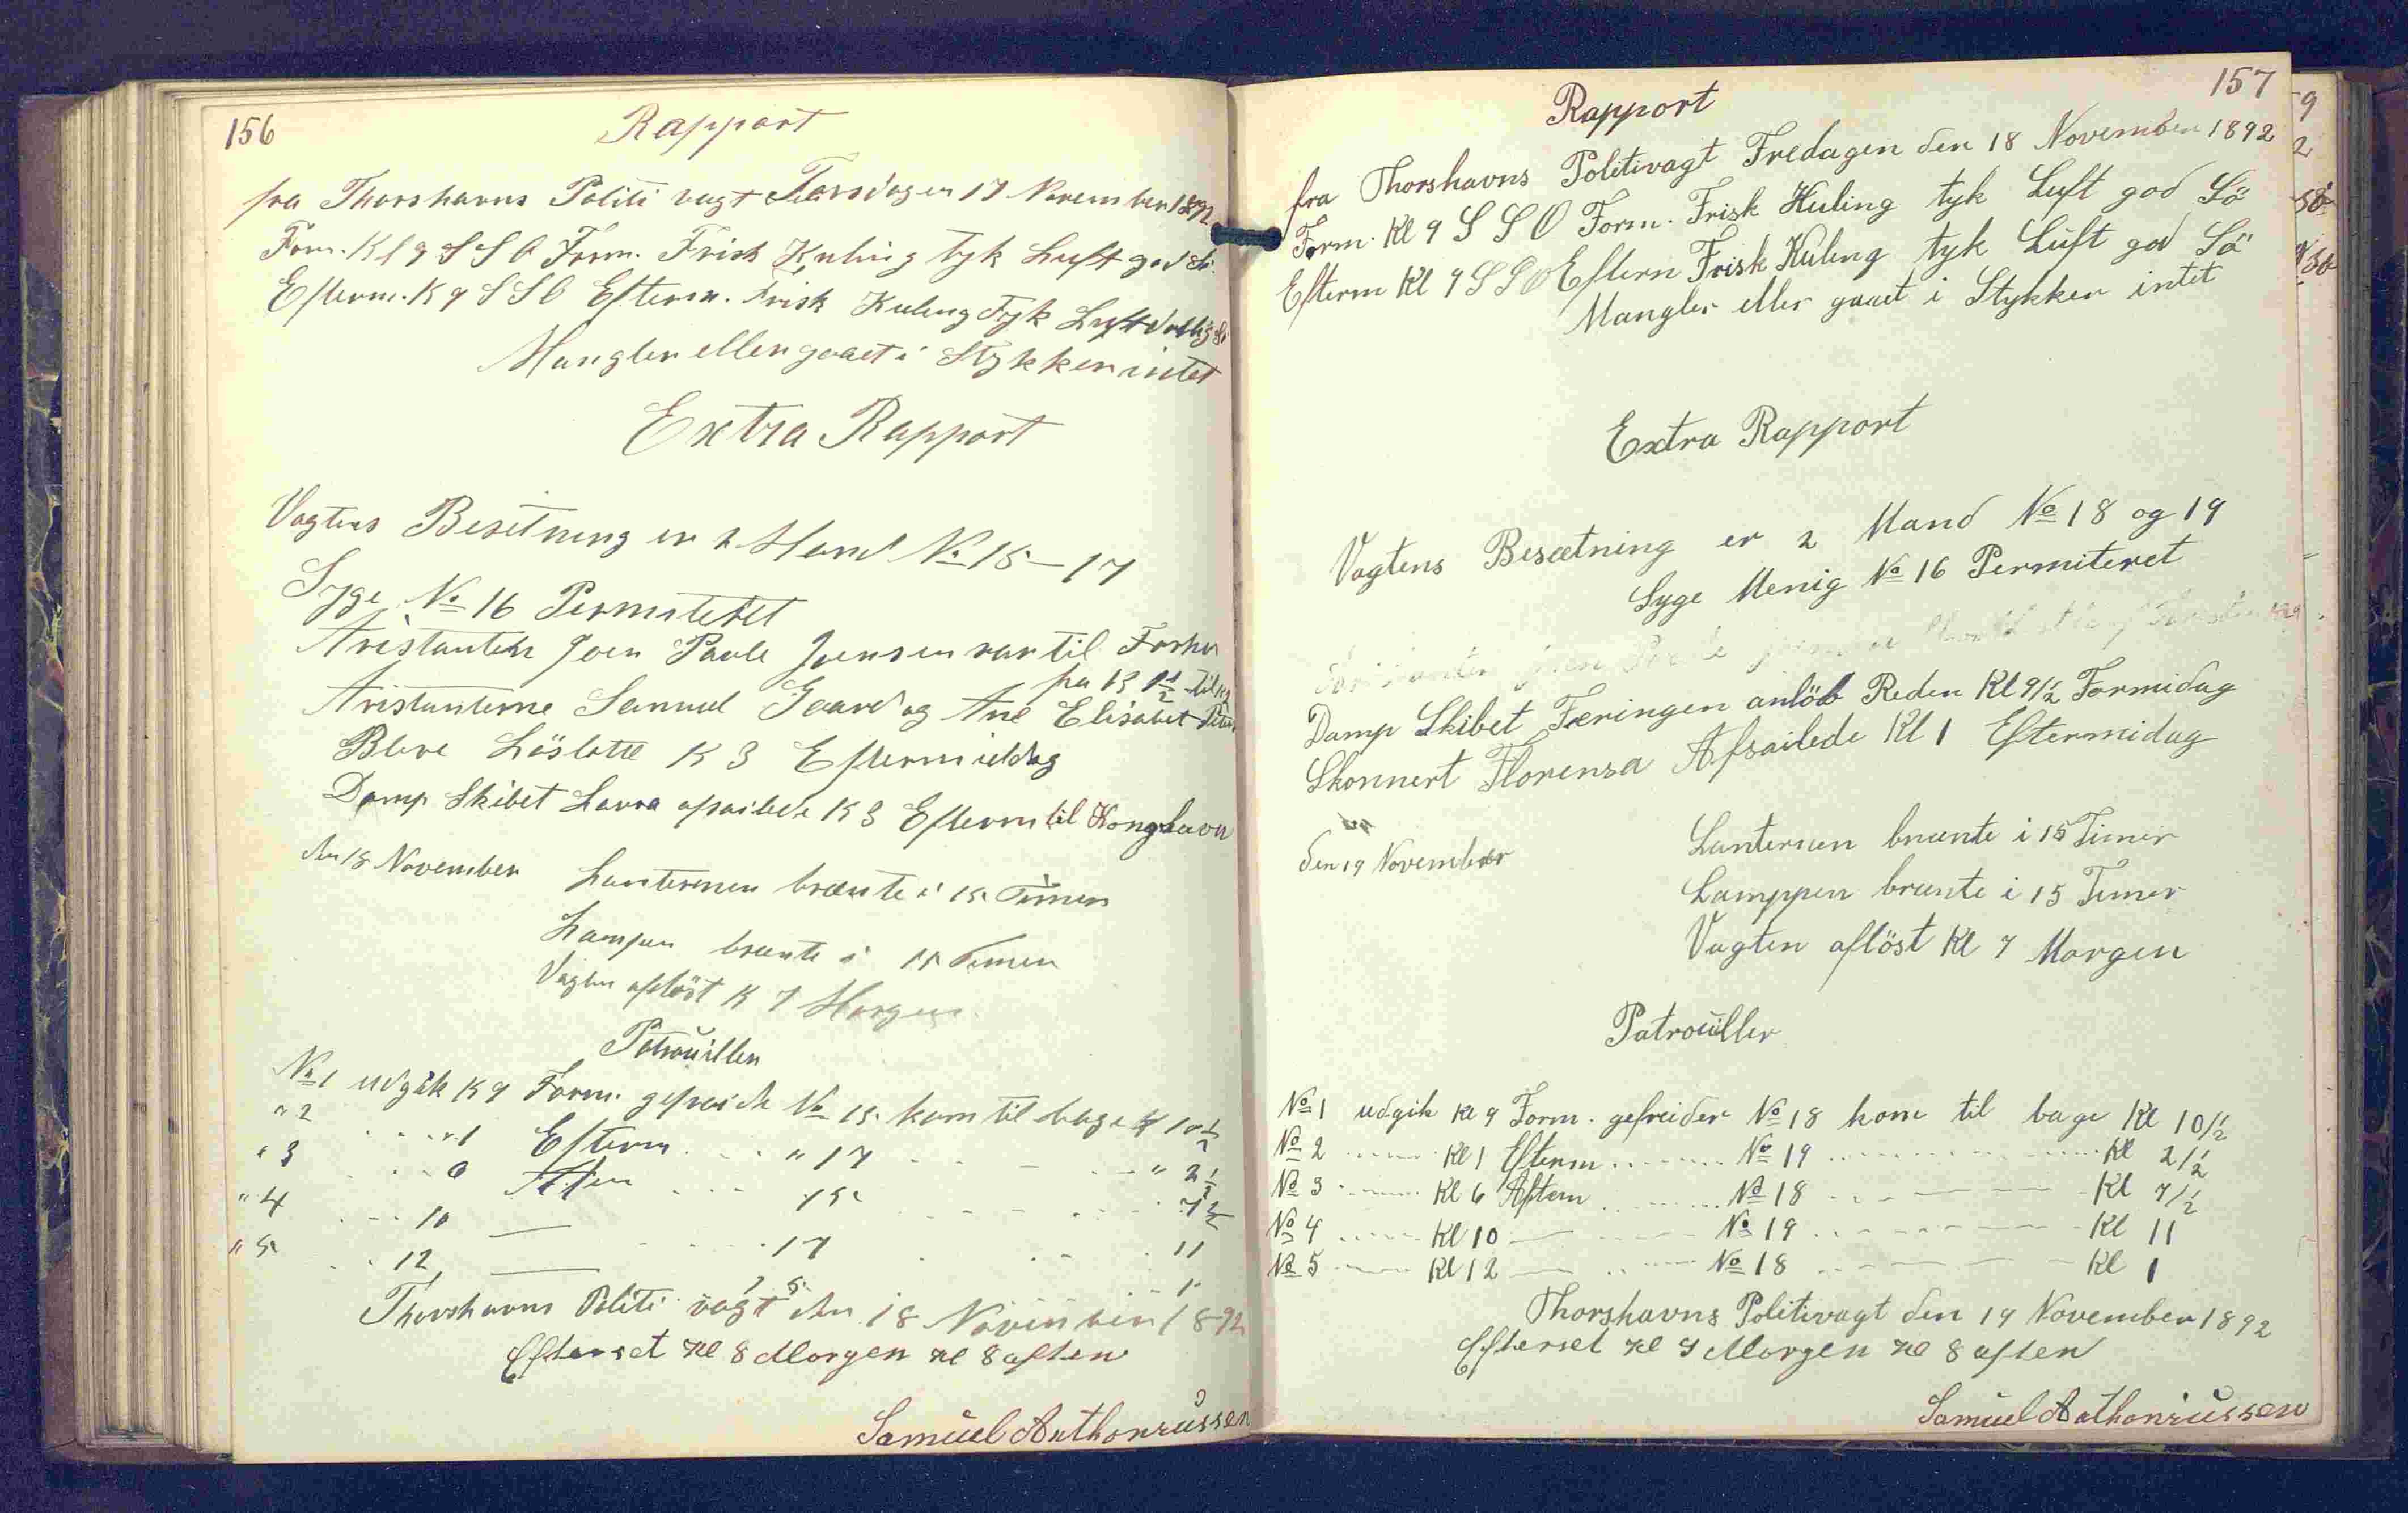 156
Rapport
fra Thorshavns Politi vagt Torsdagen 17 November 1892
Form. Kl 9 S S O Form. Frisk Kuling tyk Luft god Sö
Efterm. K 9 S S O Efterm. Frisk Kuling Tyk Luft
Mangler eller gaaet i Stykker intet
Extra Rapport
Vagtens Besetning er 2 Mand No 15 – 17
Syge No 16 Permiteret
Aristanten Joen Paule Joensen var til Forhör
fra K 1 1/2 til
Aristanterne Samuel Gaard og Ane Elisabet
Bleve Löslatte K 3 Eftermiddag
Damp Skibet Laura afsailede K 3 Efterm til Kongshavn
den 18 November
Lanternen brænte i 15 Timer
Lampen brænte i 15 Timer
Vagten aflöst K 7 Morgen
Patrouiller
No 1 udgik K 9 Form. gefreide No 15 kom til bage K 10 1/2
" 2 . . . . " 1 Efterm . . . " 17 . . . " 2 1/2
" 3 . . . 6 Aften . . . 15 . . . 7 1/2
" 4 . . . 10 — . . . 17 . . . 11
" 5 . . 12 — 15 . . . 1
Thorshavns Politi vagt den 18 November 1892
Efterset Kl 8 Morgen Kl 8 aften
Samuel Anthoniussen
157
Rapport
fra Thorshavns Politivagt Fredagen den 18 November 1892
Form. Kl 9 S S O Form. Frisk Kuling tyk Luft god Sö
Efterm Kl 9 S S O Efterm Frisk Kuling tyk Luft god Sö
Mangler eller gaaet i Stykker intet
Extra Rapport
Vagtens Besætning er 2 Mand No 18 og 19
Syge Menig No 16 Permiteret
Damp Skibet Færingen anlöb Reden Kl 9 1/2 Formidag
Skonnert Florensa Afsailede Kl 1 Eftermidag
den 19 November
Lanternen brænte i 15 Timer
Lamppen brænte i 15 Timer
Vagten aflöst Kl 7 Morgen
Patrouiller
No 1 udgik Kl 9 Form. gefreider No 18 kom til bage Kl 10 1/2
No 2 ...... Kl 1 Efterm ...... No 19 ...... Kl 2 1/2
No 3 ...... Kl 6 Aften ...... No 18 ...... Kl 7 1/2
No 4 ...... Kl 10 — ...... No 19 ...... Kl 11
No 5 ...... Kl 12 — ...... No 18 ...... Kl 1
Thorshavns Politivagt den 19 November 1892
Efterset Kl 9 Morgen Kl 8 aften
Samuel Anthoniussen